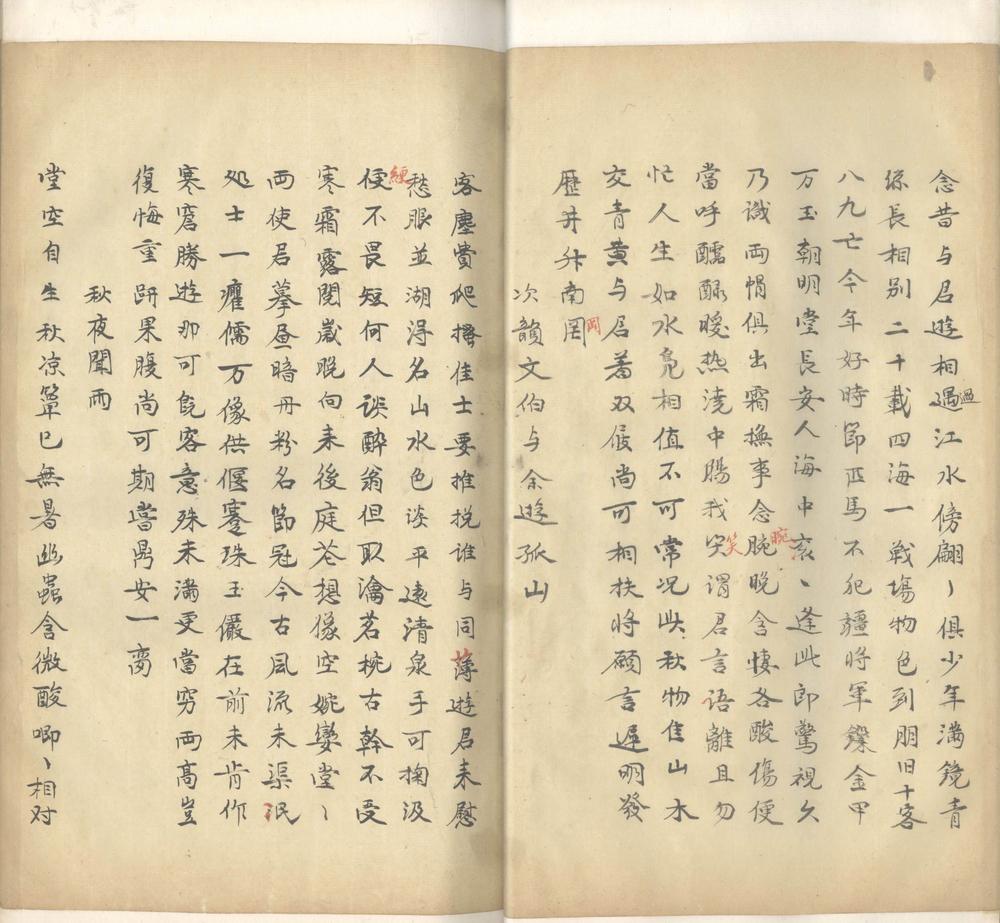 念昔与君遊相遇過江水傍翩丶俱少年满鏡青
絲長相別二十載四海一戰場物色到朋旧十客
八九亡今年好時節匹馬不犯疆将軍鏁金甲
万玉朝明堂長安人海中亥丶逢此郎驚視久
乃識両幘俱出霜撫事念腕腕晚含悽各酸傷便
當呼醹醁暖热澆中腸我突笑谓君言语離且勿
忙人生如水鳧相值不可常况此秋物佳山木
交青黄与君著双屐尚可相扶将願言遅明發
歷井升南罔岡
次韻文伯与余遊孤山
客塵費爬搔佳士要推挽谁与同薄遊君来慰
愁眼並湖浔名山水色淡平遠清泉手可掬汲
便綆不畏短何人谈酔翁但取瀹茗椀古幹不受
寒霜露閲歲晚向来後庭花想像空婉孌堂丶
両使君摹昼暗丹粉名節冠今古風流未渠泯
処士一癯儒万像供偃蹇珠玉儼在前未肯作
寒窘勝遊那可旣客意殊未满更當穷両髙豈
復悔重趼果腹尚可期嘗鼎安一脔
秋夜聞雨
堂空自生秋凉簟已無暑幽蟲含微酸唧丶相对